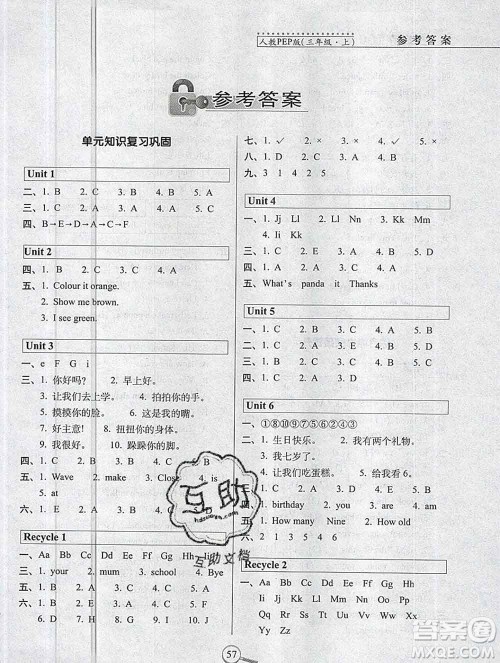 人教PEP版(三年级·上) 参考答案
参考答案
单元知识复习巩固
Unit 1
二、1. B 2. C 3. B 4. C 5. A
三、1. B 2. B 3. B 4. A
四、B→E→D→A→C
Unit 2
四、1. B 2. C 3. A
五、1. Colour it orange.
2. Show me brown.
3. I see green.
Unit 3
一、e F G i
三、1. 你好吗? 2. 你好!
3. 让我们去上学。 4. 拍拍你的手。
5. 摸摸你的脸。 6. 这是我的嘴。
7. 好主意! 8. 扭扭你的身体。
9. 我很好。 10. 跺跺你的脚。
四、1. C 2. A 3. B 4. A 5. B
五、1. Wave 2. make 3. Close 4. is
5. at
六、1. E 2. A 3. B 4. C
Recycle 1
一、Aa Bb Cc Dd Ee Ff Gg Hh Ii
三、1. your 2. mum 3. school 4. Bye
五、1. B 2. B 3. A 4. B 5. A
六、1. B 2. A 3. C 4. B 5. A
6. D 7. C 8. A
七、1. ✓ 2. × 3. × 4. × 5. ✓
八、1. D 2. A 3. E 4. B 5. C
九、3 1 2 4 5
Unit 4
一、1. Jj Ll 2. Ii Jj 3. Ii Kk
4. Ii Jj Kk
三、1. E 2. A 3. C 4. B 5. D
四、1. E 2. A 3. D 4. B 5. C
五、What's panda it Thanks
Unit 5
一、1. C 2. D 3. B 4. A 5. E
四、1. C 2. A 3. B 4. C 5. A
五、1. C 2. A 3. D 4. B
Unit 6
一、①⑧⑨⑩②⑥⑤⑦④③
二、1. 生日快乐。 2. 我有两个礼物。
3. 我七岁了。
4. 让我们吃蛋糕。 5. 给你看6。
四、1. birthday 2. you 3. are 4. I
五、1. How many 2. Nine 3. How old
六、1. D 2. A 3. B 4. E 5. C
Recycle 2
一、Aa Bb Cc Dd Ee Ff Gg Hh
Ii Jj Kk Ll Mm Nn Oo Pp
Qq Rr Ss Tt Uu Vv Ww Xx
Yy Zz
57
互助
互助文档
答案圈
MXQE.COM